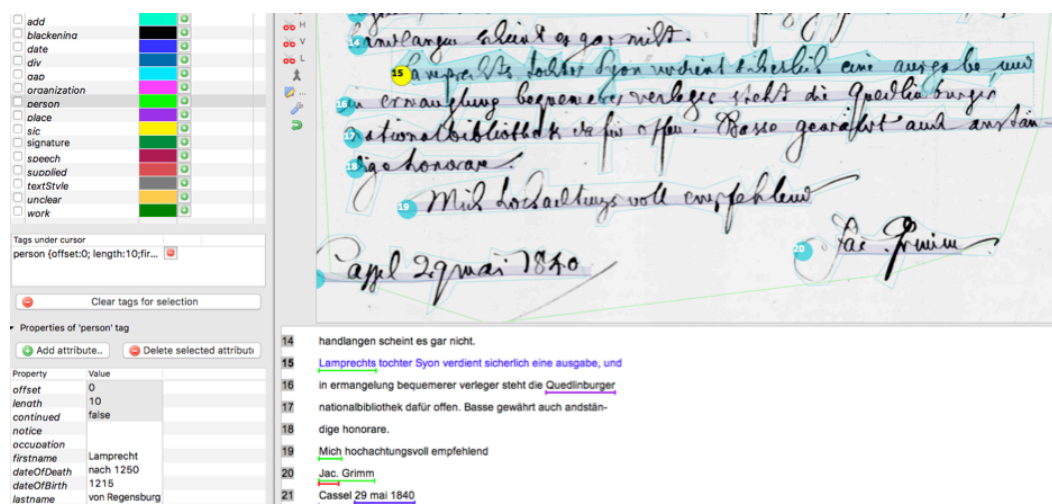 add
blackening
date
div
gap
organization
person
place
sic
signature
speech
supplied
textStyle
unclear
work
Tags under cursor
person {offset:0; length:10;fir...
Clear tags for selection
Properties of 'person' tag
Add attribute..
Delete selected attribut
Property Value
offset 0
length 10
continued false
notice
occupation
firstname Lamprecht
dateOfDeath nach 1250
dateOfBirth 1215
lastname von Regensburg
H
V
L
...
14 handlangen scheint es gar nicht.
15 Lamprechts tochter Syon verdient sicherlich eine ausgabe, und
16 in ermanglung bequemerer verleger steht die Quedlinburger
17 nationalbibliothek dafür offen. Basse gewährt auch anstän-
18 dige honorare.
19 Mich hochachtungsvoll empfehlend
20 Jac. Grimm
Cassel 29 mai 1840
14 handlangen scheint es gar nicht.
15 Lamprechts tochter Syon verdient sicherlich eine ausgabe, und
16 in ermangelung bequemerer verleger steht die Quedlinburger
17 nationalbibliothek dafür offen. Basse gewährt auch andstän-
18 dige honorare.
19 Mich hochachtungsvoll empfehlend
20 Jac. Grimm
21 Cassel 29 mai 1840